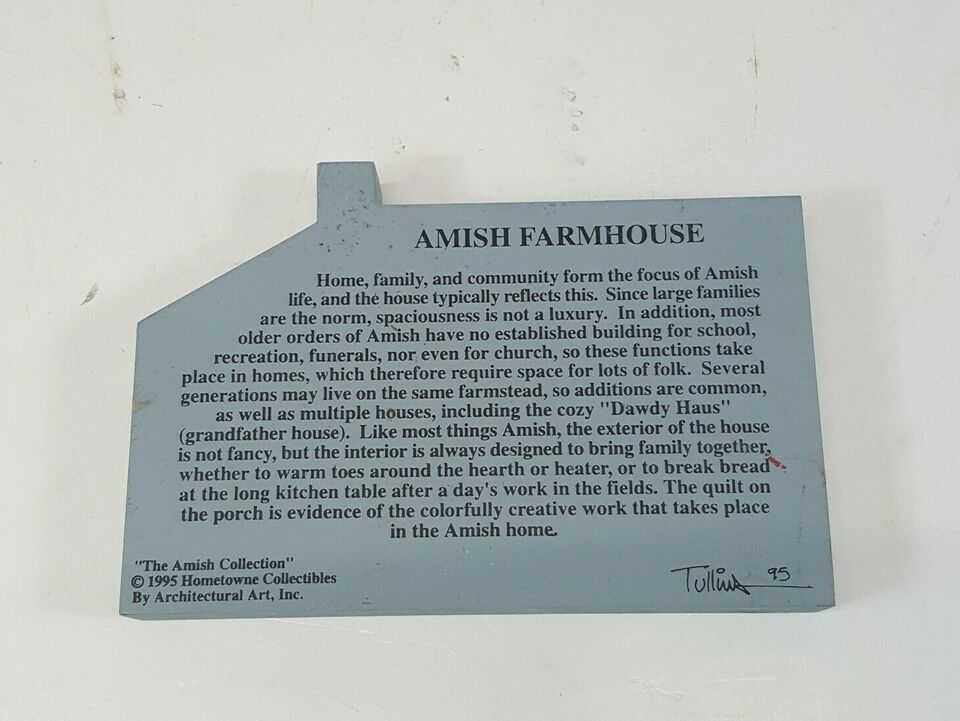 AMISH FARMHOUSE
Home, family, and community form the focus of Amish
life, and the house typically reflects this. Since large families
are the norm, spaciousness is not a luxury. In addition, most
older orders of Amish have no established building for school,
recreation, funerals, nor even for church, so these functions take
place in homes, which therefore require space for lots of folk. Several
generations may live on the same farmstead, so additions are common,
as well as multiple houses, including the cozy "Dawdy Haus"
(grandfather house). Like most things Amish, the exterior of the house
is not fancy, but the interior is always designed to bring family together,
whether to warm toes around the hearth or heater, or to break bread
at the long kitchen table after a day's work in the fields. The quilt on
the porch is evidence of the colorfully creative work that takes place
in the Amish home.
"The Amish Collection"
© 1995 Hometowne Collectibles
By Architectural Art, Inc.
Tullius 95